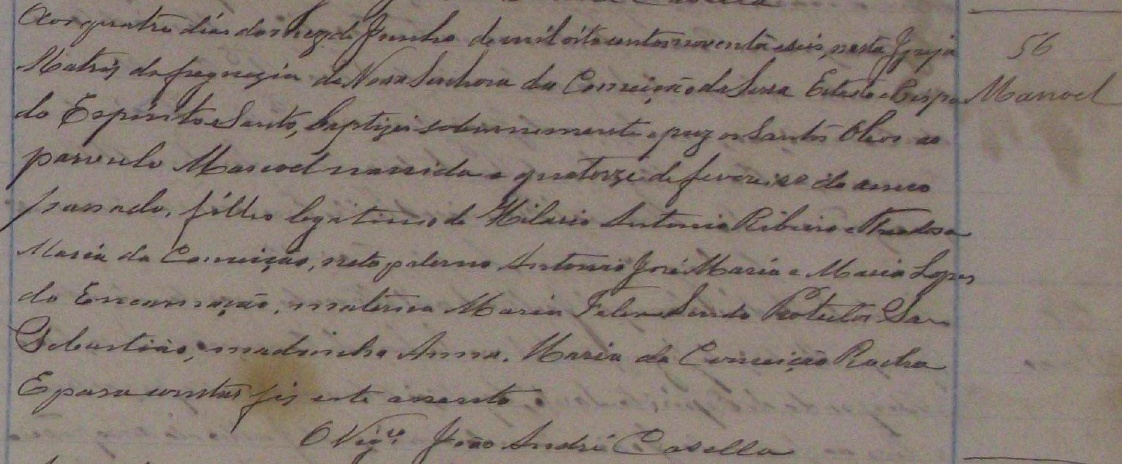 Aos quatro dias do mez de Junho de mil oito centos noventa e seis, nesta Igreja
56
Matris da freguezia de Nossa Senhora da Conceição da Serra Estado e Bispado
Manoel
do Espirito Santo, baptizei solemnemente e puz os Santos Oleos ao
parvulo Manoel nascido a quatorze de fevereiro do anno
passado, filho legitimo de Hilario Antonio Ribeiro e Theodosa
Maria da Conceição, neto paterno Antonio José Maria e Maria Lopes
da Encarnação, materna Maria sendo Protector São
Sebastião, madrinha Anna Maria da Conceição Rocha
E para constar fiz este assento
O Vigrº João André Casella